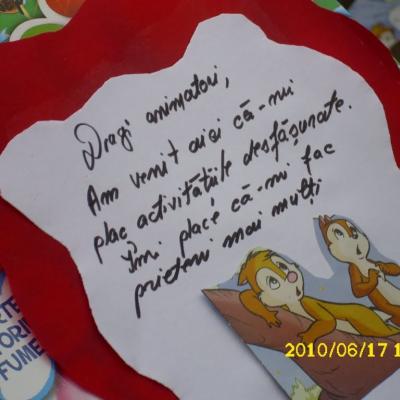 Dragi animatori,
Am venit aici că-mi
plac activitățile desfășurate.
Îmi place că-mi fac
prieteni mai mulți
RTE
ORIN
FUME
2010/06/17 1